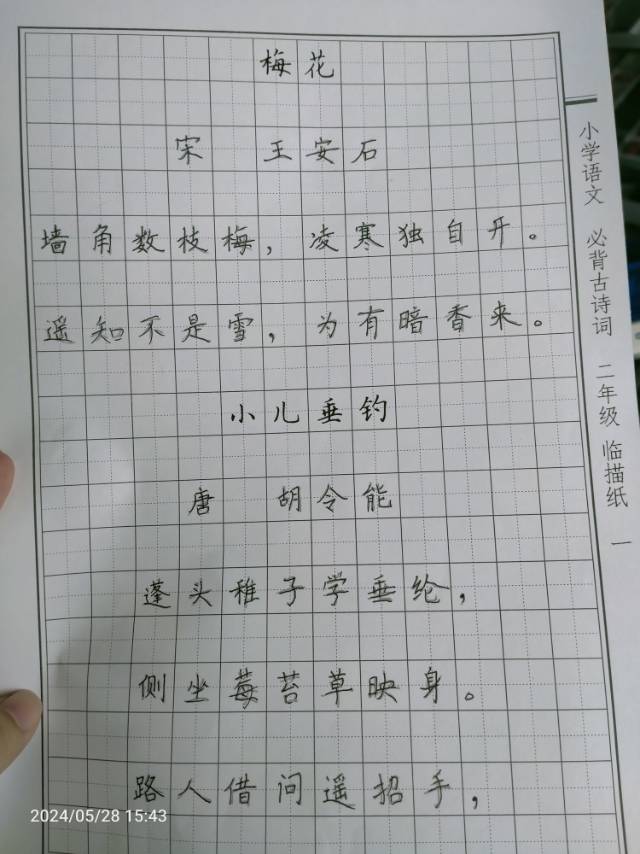 梅花
宋 王安石
墙角数枝梅，凌寒独自开。
遥知不是雪，为有暗香来。
小儿垂钓
唐 胡令能
蓬头稚子学垂纶，
侧坐莓苔草映身。
路人借问遥招手，
小学语文 必背古诗词 二年级 临描纸 一
2024/05/28 15:43